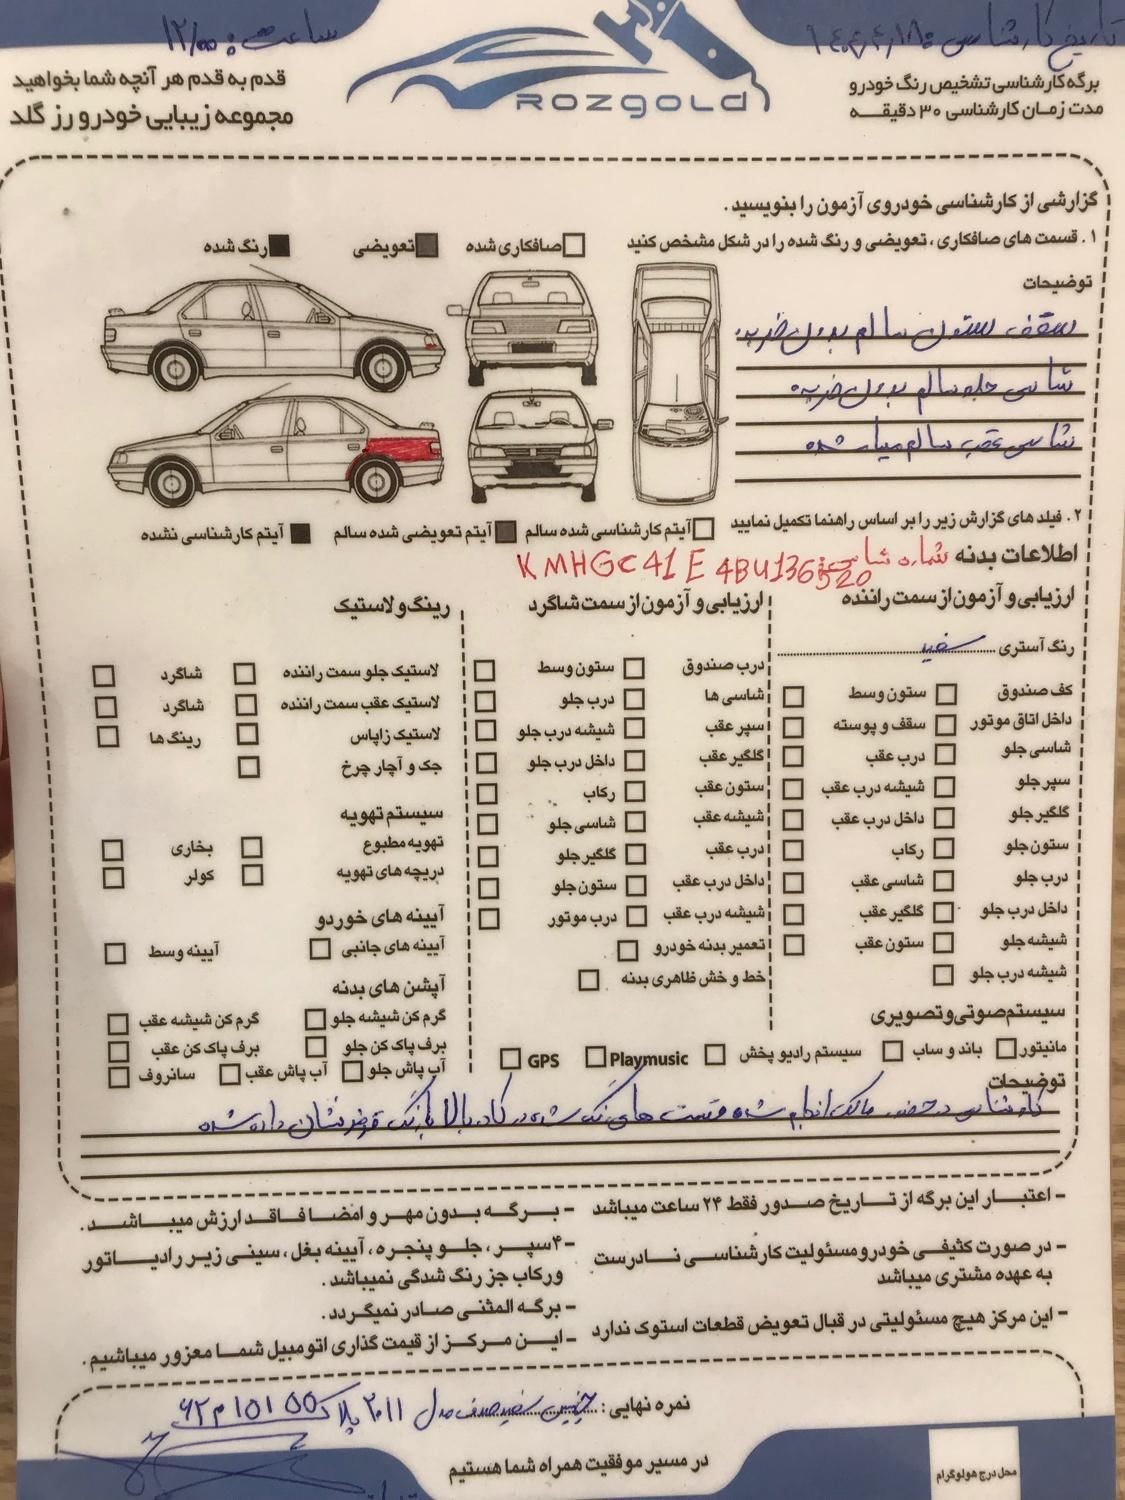 تاریخ کارشناسی:
ساعت: ۱۲/۰۰
ROZGOLD
برگه کارشناسی تشخیص رنگ خودرو
مدت زمان کارشناسی ۳۰ دقیقه
قدم به قدم هر آنچه شما بخواهید
مجموعه زیبایی خودرو رز گلد
گزارشی از کارشناسی خودروی آزمون را بنویسید.
۱. قسمت های صافکاری، تعویضی و رنگ شده را در شکل مشخص کنید صافکاری شده تعویضی رنگ شده
توضیحات
سقف ستون سالم بدون ضربه
شاسی جلو سالم بدون ضربه
شاسی عقب سالم
۲. فیلد های گزارش زیر را بر اساس راهنما تکمیل نمایید آیتم کارشناسی شده سالم آیتم تعویضی شده سالم آیتم کارشناسی نشده
اطلاعات بدنه شماره شاسی: KMHGC41E4BU136520
ارزیابی و آزمون از سمت راننده
رنگ آستری سفید
کف صندوق ستون وسط
داخل اتاق موتور سقف و پوسته
شاسی جلو درب عقب
سپر جلو شیشه درب عقب
گلگیر جلو داخل درب عقب
ستون جلو رکاب
درب جلو شاسی عقب
داخل درب جلو گلگیر عقب
شیشه جلو ستون عقب
شیشه درب جلو
ارزیابی و آزمون از سمت شاگرد
درب صندوق ستون وسط
شاسی ها درب جلو
سپر عقب شیشه درب جلو
گلگیر عقب داخل درب جلو
ستون عقب رکاب
شیشه عقب شاسی جلو
درب عقب گلگیر جلو
داخل درب عقب ستون جلو
شیشه درب عقب درب موتور
تعمیر بدنه خودرو
خط و خش ظاهری بدنه
رینگ و لاستیک
لاستیک جلو سمت راننده شاگرد
لاستیک عقب سمت راننده شاگرد
لاستیک زاپاس رینگ ها
جک و آچار چرخ
سیستم تهویه
تهویه مطبوع بخاری
دریچه های تهویه کولر
آیینه های خوردو
آیینه های جانبی آیینه وسط
آپشن های بدنه
گرم کن شیشه جلو گرم کن شیشه عقب
برف پاک کن جلو برف پاک کن عقب
آب پاش جلو آب پاش عقب سانروف
سیستم صوتی و تصویری
مانیتور باند و ساب سیستم رادیو پخش Playmusic GPS
توضیحات
کارشناسی در حضور مالک انجام شده قسمت های رنگ شده در کادر بالا با رنگ قرمز نشان داده شده
- اعتبار این برگه از تاریخ صدور فقط ۲۴ ساعت میباشد
- در صورت کثیفی خودرو مسئولیت کارشناسی نادرست
به عهده مشتری میباشد
- این مرکز هیچ مسئولیتی در قبال تعویض قطعات استوک ندارد
- برگه بدون مهر و امضا فاقد ارزش میباشد.
-۴سپر، جلو پنجره، آیینه بغل، سینی زیر رادیاتور
و رکاب جز رنگ شدگی نمیباشد.
- برگه المثنی صادر نمیگردد.
- این مرکز از قیمت گذاری اتومبیل شما معزور میباشیم.
نمره نهایی: سفید صدف مدل ۲۰۱۱ پلاک
در مسیر موفقیت همراه شما هستیم
محل درج هولوگرام